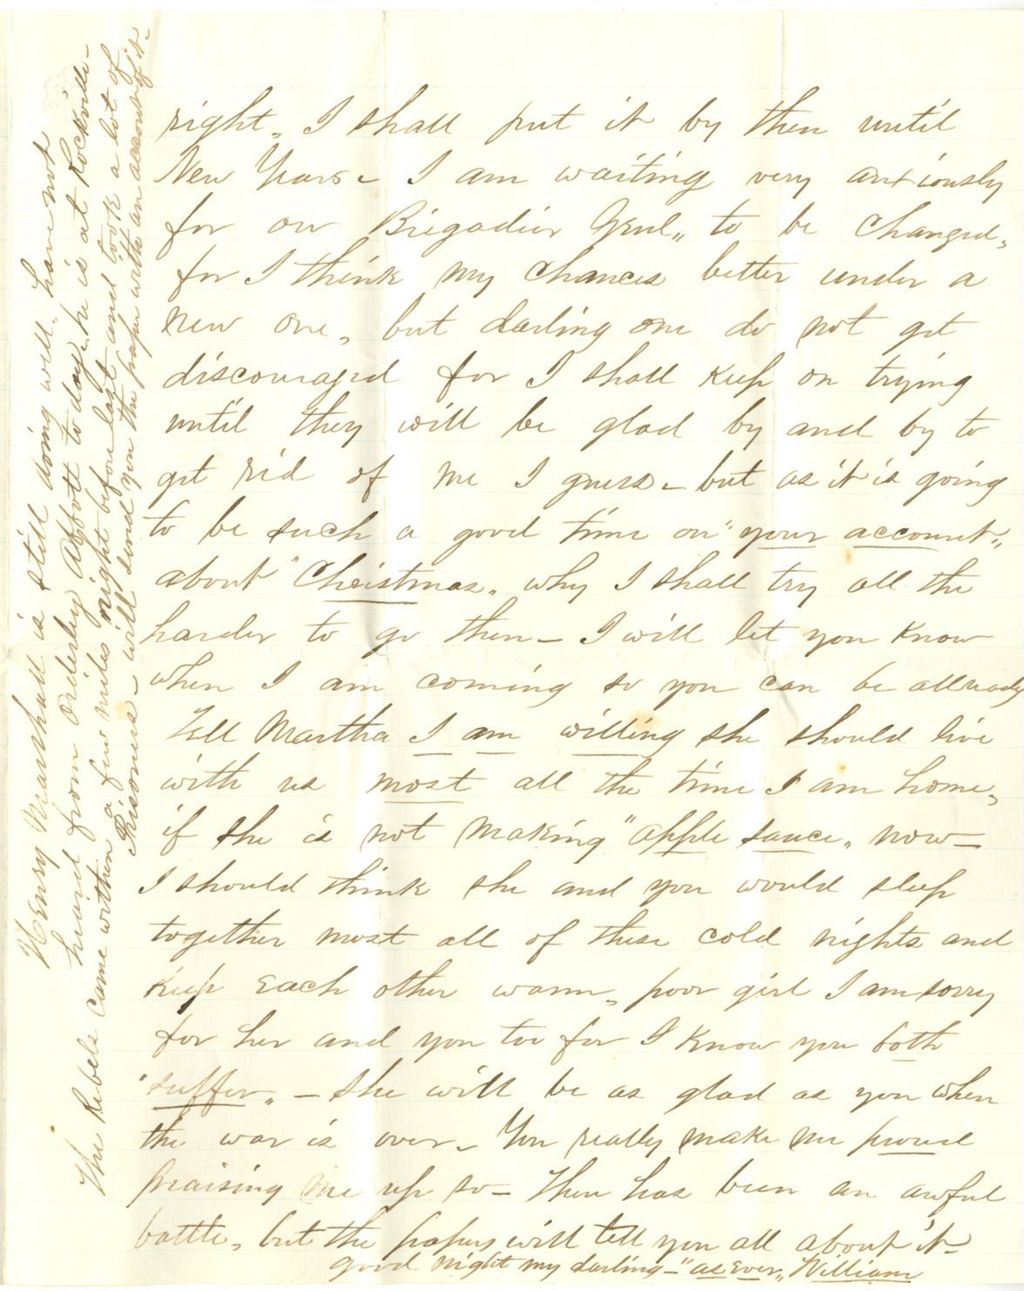 right, I shall put it by then until
New Years – I am waiting very anxiously
for our Brigadier Genl,, to be changed,
for I think my chances better under a
new one, but darling one do not get
discouraged for I shall keep on trying
until they will be glad by and by to
get rid of me I guess – but as it is going
to be such a good time on "your account,,
about "Christmas,, why I shall try all the
harder to go then – I will let you know
when I am coming so you can be allready
Tell Martha I am willing she should live
with us most all the time I am home,
if she is not making "apple sauce,, now –
I should think she and you would sleep
together most all of these cold nights and
keep each other warm, poor girl I am sorry
for her and you too for I know you both
"suffer,, – she will be as glad as you when
the war is over – You really make me proud
praising me up so – There has been an awful
battle, but the papers will tell you all about it –
good night my darling – "as ever,, William
Henry Marshall is still doing well, have not
heard from Orderly Abbott to day, he is at Rockville –
The Rebels came within a few miles night before last and took a lot of
Prisoners – will send you the paper with an account of it –